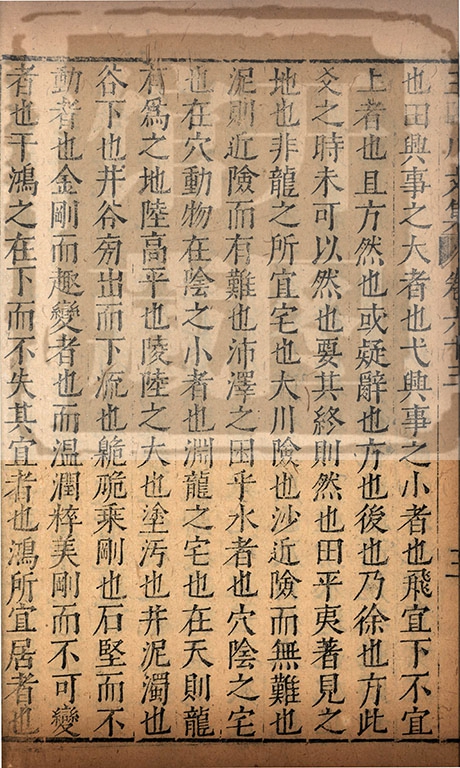 王臨川文集 卷六十三 二
也田興事之大者也弋興事之小者也飛宜下不宜
上者也且方然也或疑辭也方也後也乃徐也方此
爻之時未可以然也要其終則然也田平夷著見之
地也非龍之所宜宅也大川險也沙近險而無難也
泥則近險而有難也沛澤之困乎水者也穴陰之宅
也在穴動物在陰之小者也淵龍之宅也在天則龍
有爲之地陸高平也陵陸之大也塗汚也井泥濁也
谷下也井谷旁出而下流也臲卼乘剛也石堅而不
動者也金剛而趣變者也而温潤梓美剛而不可變
者也干鴻之在下而不失其宜者也鴻所宜居者也